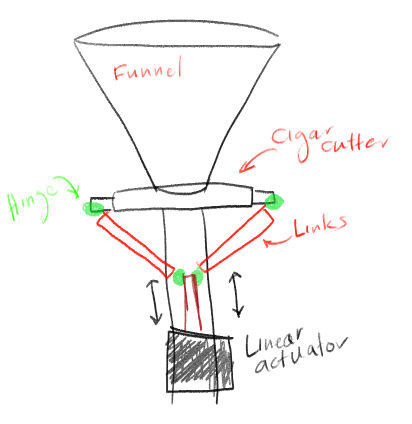 Funnel
Cigar
cutter
Hinge
Links
Linear
actuator